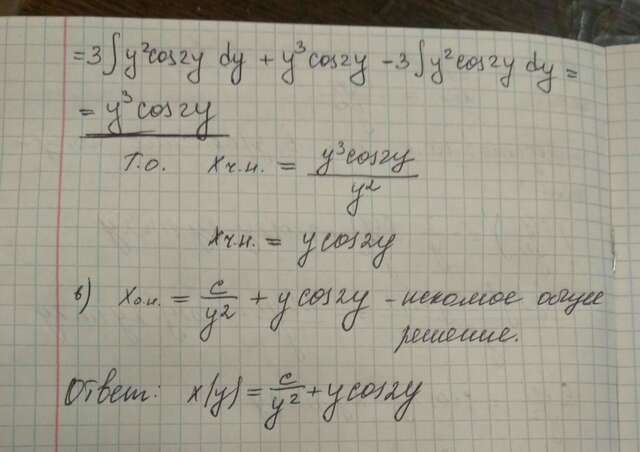 = 3∫y²cos2y dy + y³cos2y - 3∫y²cos2y dy =
= y³cos2y
Т.О. Xч.н. = y³cos2y / y²
Xч.н. = y cos2y
в) Xо.н. = c/y² + y cos2y - искомое общее
решение.
Ответ: x(y) = c/y² + y cos2y